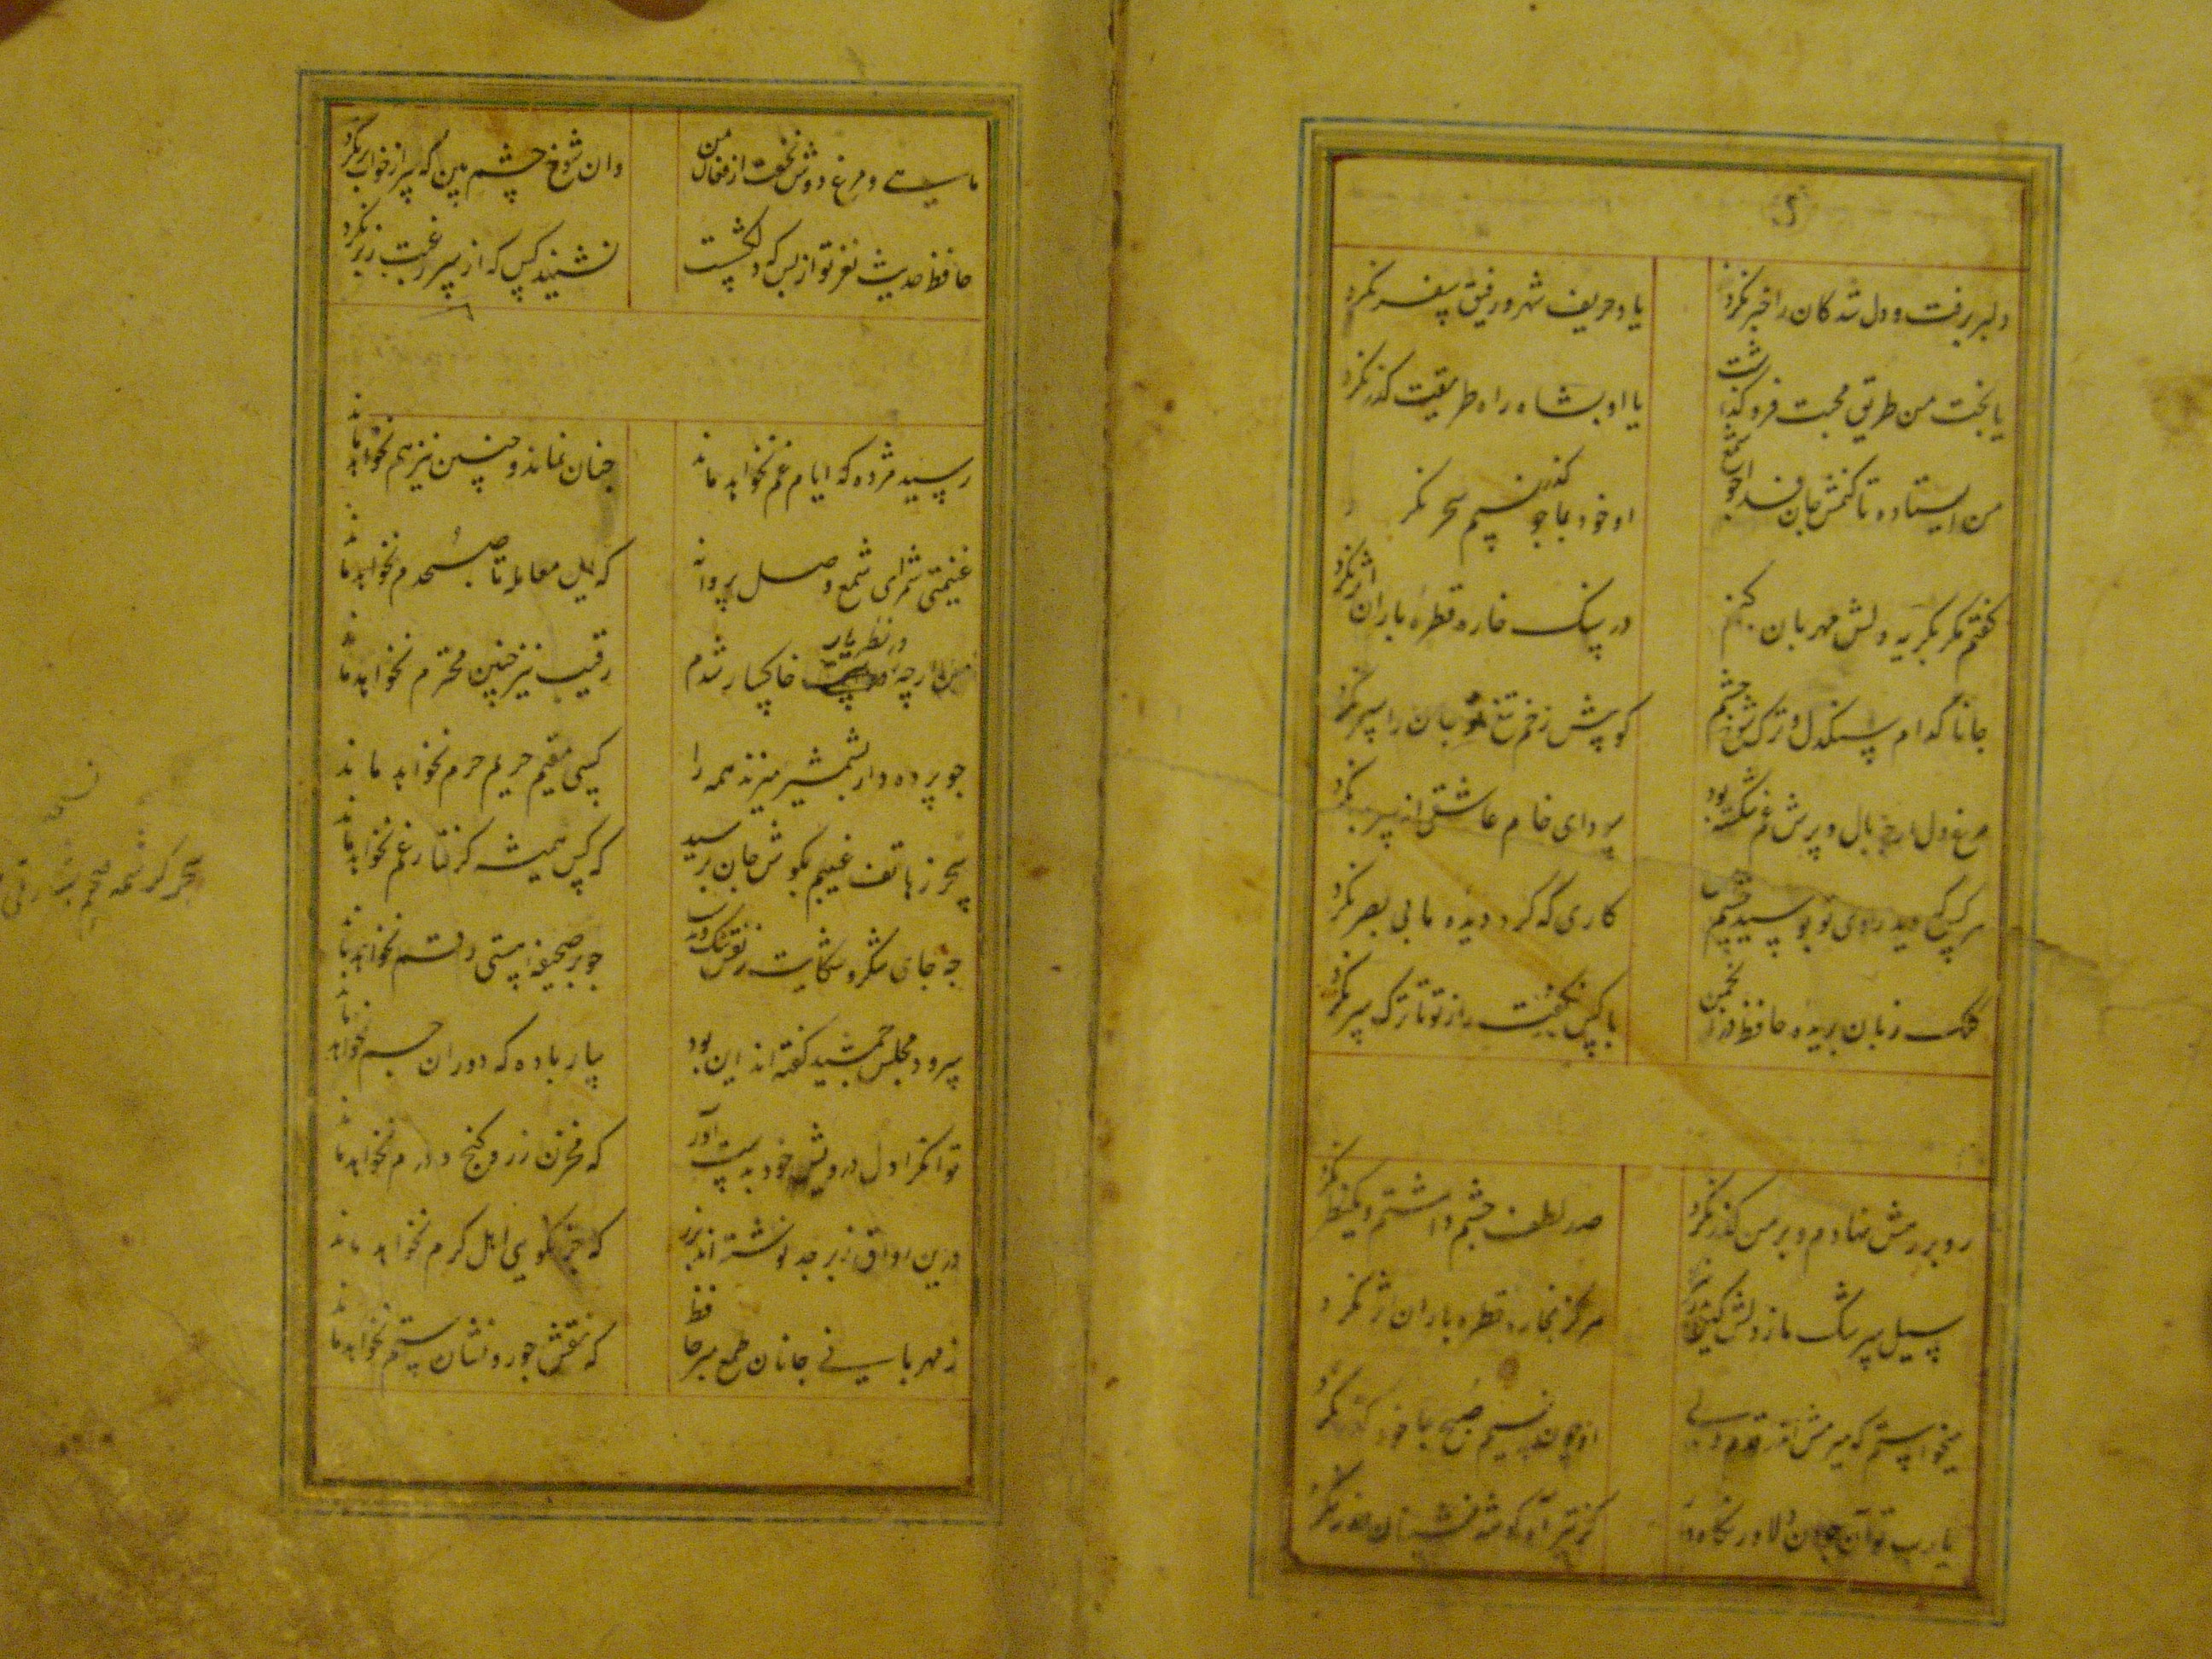 دلبر برفت و دل شدکان را خبر نکرد یاد حریف شهر و رفیق سفر نکرد
یا بخت من طریق محبت فرو کذاشت یا او بشاه راه طریقت کذر نکرد
من ایستاده تا کنمش جان فدا جو شمع او خود بما جو نسیم سحر نکرد
کفتم مکر بکریه دلش مهربان کنم در سنک خاره قطره باران اثر نکرد
جانا کدام سنکدل و ترک شوخ چشم کو پیش زخم تیغ تو جان را سپر نکرد
مرغ دل ارچه بال و پرش غم شکسته بود سودای خام عاشقی از سر بدر نکرد
هر کس که دید روی تو بوسید چشم من کاری که کرد دیده ما بی بصر نکرد
کلک زبان بریده حافظ در انجمن با کس نکفت راز تو تا ترک سر نکرد
رو بر رهش نهادم و بر من کذر نکرد صد لطف چشم داشتم و یکنظر نکرد
سیل سرشک ما ز دلش کین بدر نبرد هرکز بخاره قطره باران اثر نکرد
میخواستم که میرمش اندر قدم
یارب تو آن جوان دلاور نکاه دار کز تیر آه کوشه نشینان حذر نکرد
ماهی و مرغ دوش نخفت از فغان من وان شوخ چشم بین که سر از خواب بر نکرد
حافظ حدیث نغز تو از بس که دلکشست نشنید کس که از سر رغبت ز بر نکرد
رسید مژده که ایام غم نخواهد ماند جنان نماند و جنین نیز هم نخواهد ماند
غنیمتی شمر ای شمع وصل پروانه که این معامله تا صبحدم نخواهد ماند
من ارچه در نظر یار خاکسار شدم رقیب نیز جنین محترم نخواهد ماند
جو پرده دار بشمشیر میزند همه را کسی مقیم حریم حرم نخواهد ماند
سحر ز هاتف غیبم بکوش جان رسید که کس همیشه کرفتار غم نخواهد ماند
جه جای شکر و شکایت ز نقش نیک و بدست جو بر صحیفه هستی رقم نخواهد ماند
سرود مجلس جمشید کفته اند این بود بیار باده که دوران جم نخواهد ماند
توانکرا دل درویش خود بدست آور که مخزن زر و کنج درم نخواهد ماند
درین رواق زبرجد نوشته اند بزر که جز نکویی اهل کرم نخواهد ماند
ز مهربانی جانان طمع مبر حافظ که نقش جور و نشان ستم نخواهد ماند